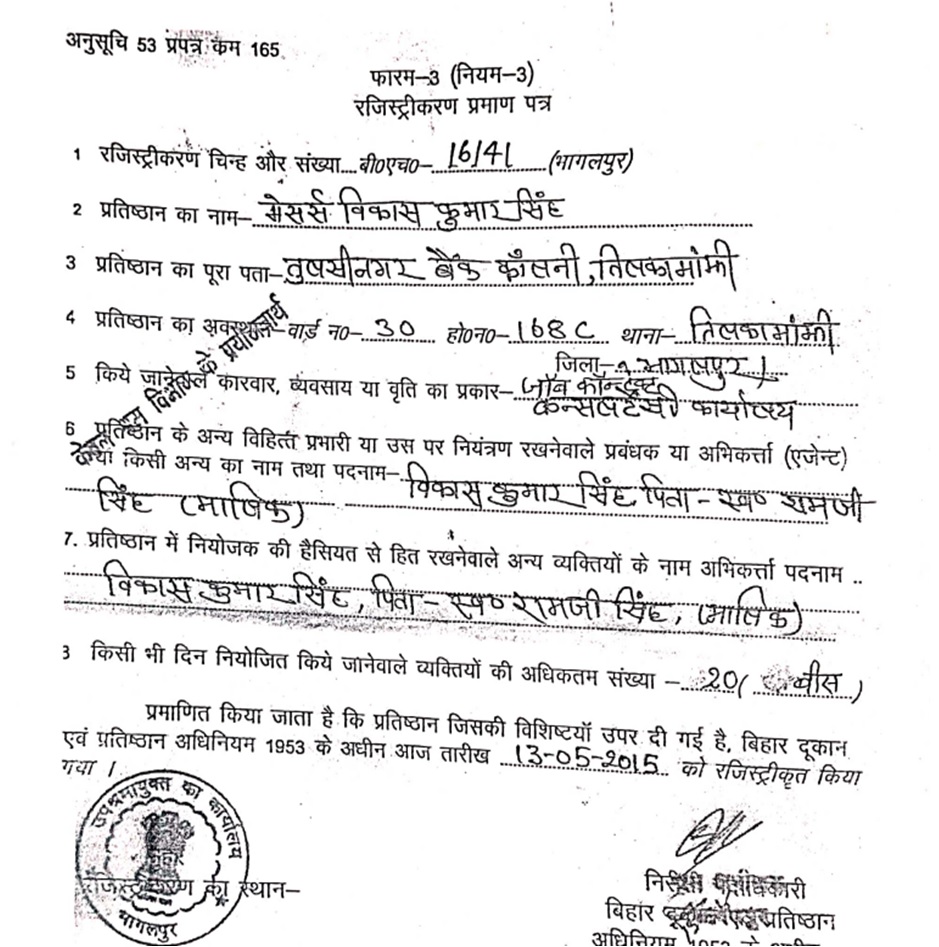 अनुसूचि 53 प्रपत्र कम 165
फारम-3 (नियम-3)
रजिस्ट्रीकरण प्रमाण पत्र
1 रजिस्ट्रीकरण चिन्ह और संख्या...बी०एच०- 16141 (भागलपुर)
2 प्रतिष्ठान का नाम- मेसर्स विकास कुमार सिंह
3 प्रतिष्ठान का पूरा पता- तुलसीनगर बैंक कॉलनी, तिलकामांझी
4 प्रतिष्ठान का अवस्थान- वार्ड न०- 30 हो०न०- 168C थाना- तिलकामांझी
जिला- भागलपुर।
5 किये जानेवाले कारवार, व्यवसाय या वृति का प्रकार- जॉब कॉन्ट्रेक्ट
कन्सलटेंसी कार्यालय
केवल श्रम विभाग के प्रयोजनार्थ
6 प्रतिष्ठान के अन्य विहित्त प्रभारी या उस पर नियंत्रण रखनेवाले प्रबंधक या अभिकर्त्ता (एजेन्ट)
या किसी अन्य का नाम तथा पदनाम- विकास कुमार सिंह पिता- स्व० रामजी
सिंह (मालिक)
7. प्रतिष्ठान में नियोजक की हैसियत से हित रखनेवाले अन्य व्यक्तियों के नाम अभिकर्त्ता पदनाम ..
विकास कुमार सिंह, पिता- स्व० रामजी सिंह, (मालिक)
3 किसी भी दिन नियोजित किये जानेवाले व्यक्तियों की अधिकतम संख्या - 20( बीस )
प्रमाणित किया जाता है कि प्रतिष्ठान जिसकी विशिष्टयॉ उपर दी गई है, बिहार दूकान
एवं प्रतिष्ठान अधिनियम 1953 के अधीन आज तारीख 13-05-2015 को रजिस्ट्रीकृत किया
गया।
उपश्रमायुक्त का कार्यालय
बिहार
भागलपुर
रजिस्ट्रीकरण का स्थान-
निरीक्षी पदाधिकारी
बिहार दूकान एवं प्रतिष्ठान
अधिनियम 1953 के अधीन